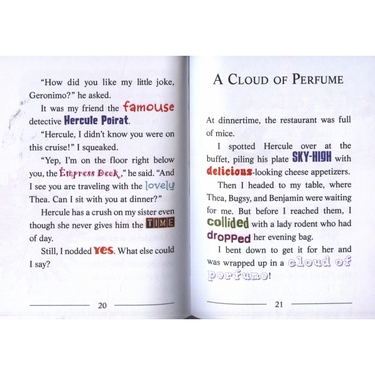 "How did you like my little joke,
Geronimo?" he asked.
It was my friend the famouse
detective Hercule Poirat.
"Hercule, I didn't know you were on
this cruise!" I squeaked.
"Yep, I'm on the floor right below
you, the Empress Deck," he said. "And
I see you are traveling with the lovely
Thea. Can I sit with you at dinner?"
Hercule has a crush on my sister even
though she never gives him the TIME
of day.
Still, I nodded yes. What else could
I say?
20
A CLOUD OF PERFUME
At dinnertime, the restaurant was full
of mice.
I spotted Hercule over at the
buffet, piling his plate SKY-HIGH with
delicious-looking cheese appetizers.
Then I headed to my table, where
Thea, Bugsy, and Benjamin were waiting
for me. But before I reached them, I
collided with a lady rodent who had
dropped her evening bag.
I bent down to get it for her and
was wrapped up in a cloud of
perfume!
21